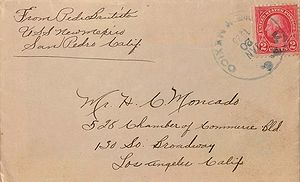 From Pedro Bautista
U.S.S. New Mexico
San Pedro Calif.
MEXICO
JAN
20
2 CENTS 2
Mr. H. C. Moncado
536 Chamber of Commerce Bld.
130 So. Broadway
Los Angeles Calif